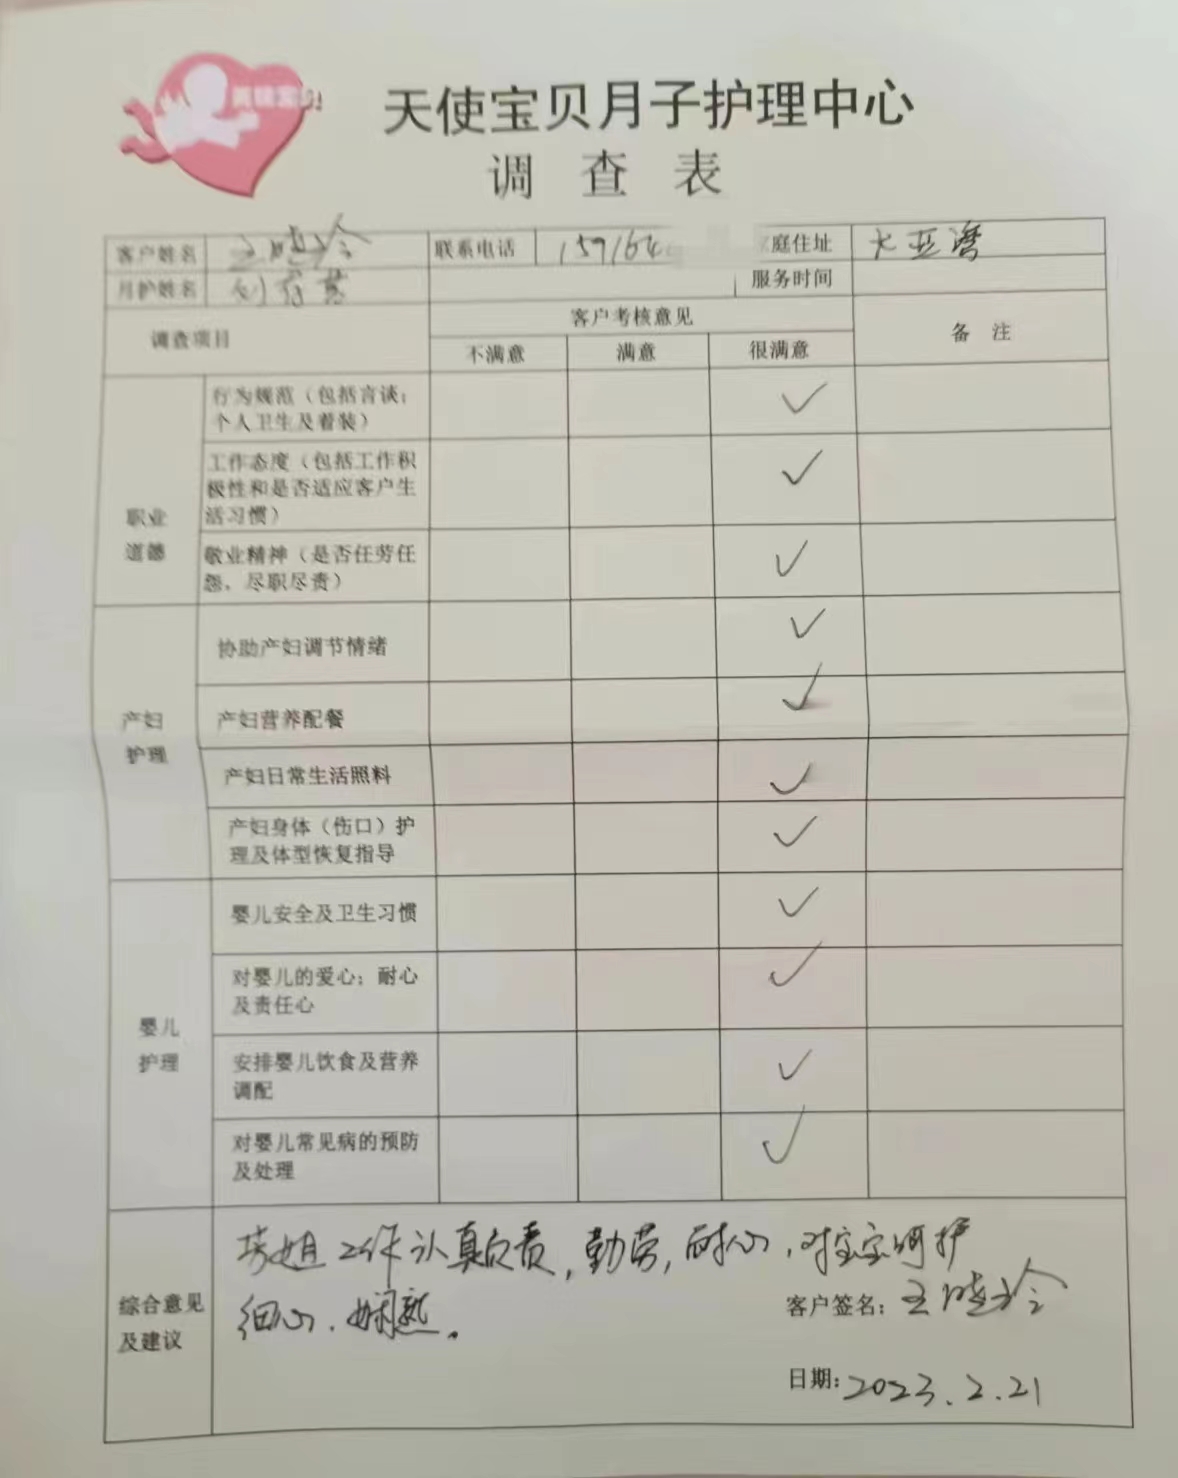 天使宝贝
天使宝贝月子护理中心
调 查 表
客户姓名 王晓玲 联系电话 159164 庭住址 大亚湾
月护姓名 刘 服务时间
调查项目 客户考核意见 备 注
不满意 满意 很满意
行为规范（包括言谈；
个人卫生及着装） ✓
工作态度（包括工作积
极性和是否适应客户生
活习惯） ✓
职业
道德
敬业精神（是否任劳任
怨，尽职尽责） ✓
协助产妇调节情绪 ✓
产妇
护理
产妇营养配餐 ✓
产妇日常生活照料 ✓
产妇身体（伤口）护
理及体型恢复指导 ✓
婴儿安全及卫生习惯 ✓
对婴儿的爱心；耐心
及责任心 ✓
婴儿
护理
安排婴儿饮食及营养
调配 ✓
对婴儿常见病的预防
及处理 ✓
综合意见
及建议
姐工作认真负责，勤劳，耐心，对宝宝呵护
细心、娴熟。
客户签名：王晓玲
日期：2023.2.21